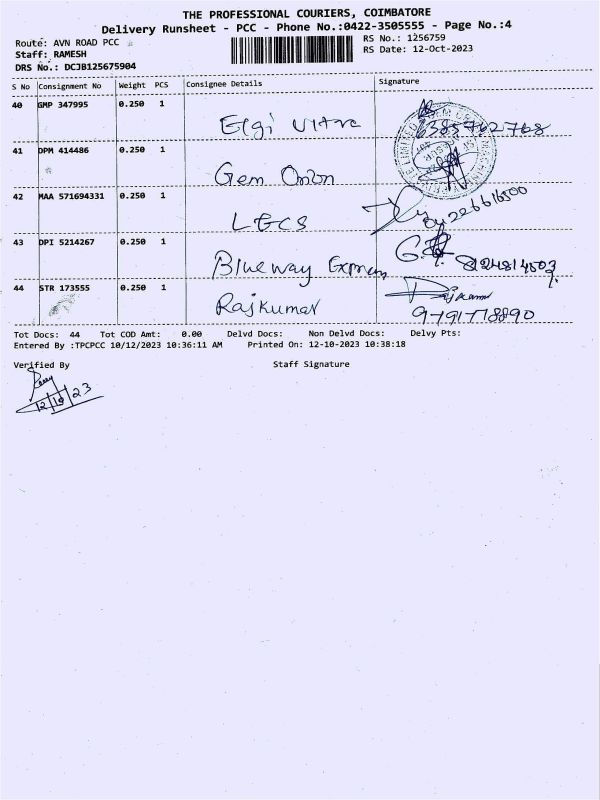 THE PROFESSIONAL COURIERS, COIMBATORE
Delivery Runsheet - PCC - Phone No.:0422-3505555 - Page No.:4
Route: AVN ROAD PCC
RS No.: 1256759
Staff: RAMESH
RS Date: 12-Oct-2023
DRS No.: DCJB125675904
S No Consignment No Weight PCS Consignee Details Signature
40 GMP 347995 0.250 1 Elgi Ultra 6385762768
41 DPM 414486 0.250 1 Gem Orion
42 MAA 571694331 0.250 1 LGCS
43 DPI 5214267 0.250 1 Blueway Express 8124814503
44 STR 173555 0.250 1 Rajkumar Rajkumar
9791778890
Tot Docs: 44 Tot COD Amt: 0.00 Delvd Docs: Non Delvd Docs: Delvy Pts:
Entered By :TPCPCC 10/12/2023 10:36:11 AM Printed On: 12-10-2023 10:38:18
Verified By Staff Signature
12/10/23